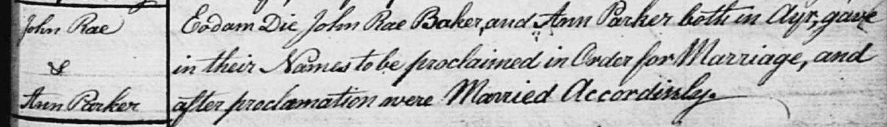 John Rae
&
Ann Parker
Eodam Die John Rae Baker, and Ann Parker both in Ayr, gave
in their Names to be proclaimed in Order for Marriage, and
after proclamation were Married Accordinly.